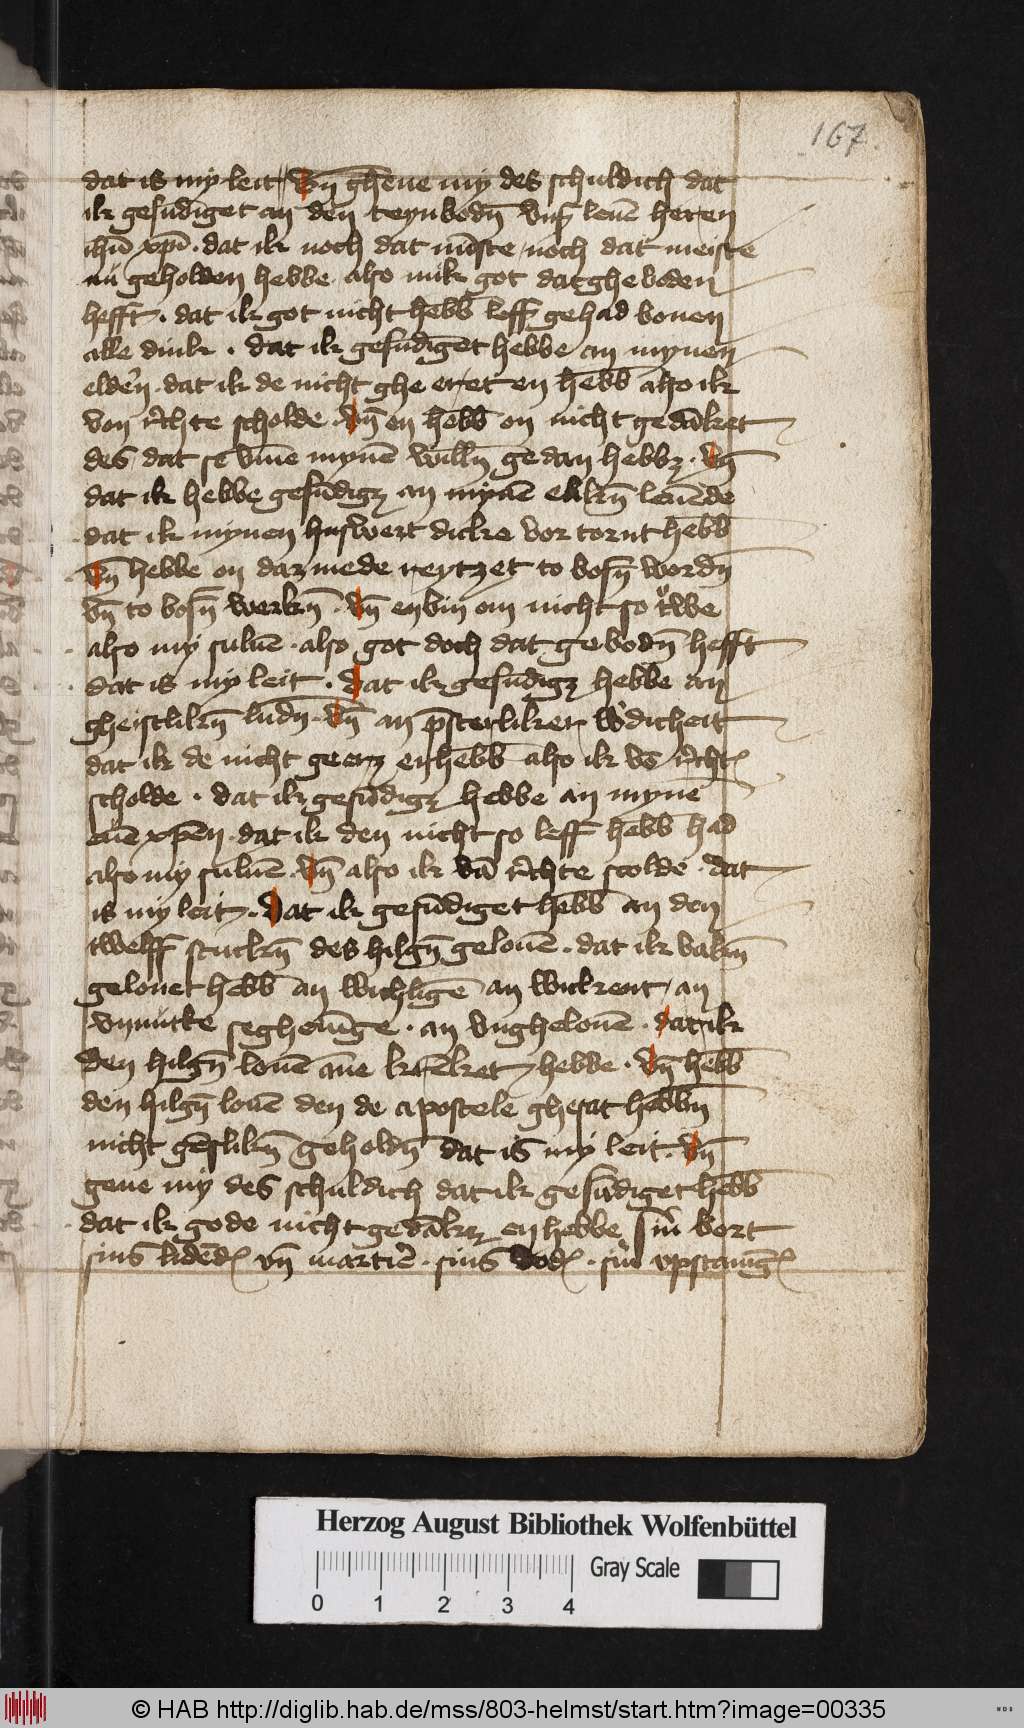 167.
dat is my leit / vn̄ gheue my des schuldich dat
ik gesūdiget an den teyn bodn̄ vnß leuē heren
ihū xpī · dat ik noch dat mīste noch dat meiste
nü geholden hebbe also mik got dat gheboden
hefft · dat ik got nicht hebb̄ leff gehad bouen
alle dink · dat ik gesūdiget hebbe an mynen
elder̄n · dat ik de nicht ghe eret en hebb̄ also ik
von rechte scholde · vn̄ en hebb̄ on nicht gedāket
des dat se vm̄e mynē willn̄ gedan hebbꝫ · vn̄
dat ik hebbe gesūdigꝫ an mynē elikn̄ leuēde
dat ik mynen huswert dicke vor tornt hebb̄
vn̄ hebbe on daꝫ mede reytzet to bosn̄ wordn̄
vn̄ to bosn̄ werkn̄ · vn̄ en bin om nicht so trwe
also my suluē · also got doch dat gebodn̄ hefft
dat is my leit · Dat ik gesūdigꝫ hebbe an
gheistlikn̄ ludn̄ · vn̄ an p̄sterliker w̓dicheit
dat ik de nicht geerꝫ en hebb̄ also ik vō rechte
scholde · dat ik gesūdigꝫ hebbe an mynē
euē xp̄en · dat ik den nicht so leff hebb̄ had
also my suluē · vn̄ also ik vā rechte scolde · dat
is my leit · Dat ik gesūdiget hebb̄ an den
twelff stuckn̄ des hilgn̄ gelouē · dat ik vakn̄
gelouet hebb̄ an wichlīge an wickent / an
vnnutke segheninge · an vnghelouē · dat ik
den hilgn̄ louē ane krēket hebbe · vn̄ hebb̄
den hilgn̄ louē den de apostele ghesat hebbn̄
nicht gēslikn̄ geholdn̄ dat is my leit · vn̄
geue my des schuldich dat ik gesūdiget hebb̄
dat ik gode nicht gedākꝫ en hebbe sin̓ bort
sins lidēdes vn̄ martir̄e · sins dodes · sin̓ vpstandīge
Herzog August Bibliothek Wolfenbüttel
Gray Scale
0 1 2 3 4
© HAB http://diglib.hab.de/mss/803-helmst/start.htm?image=00335